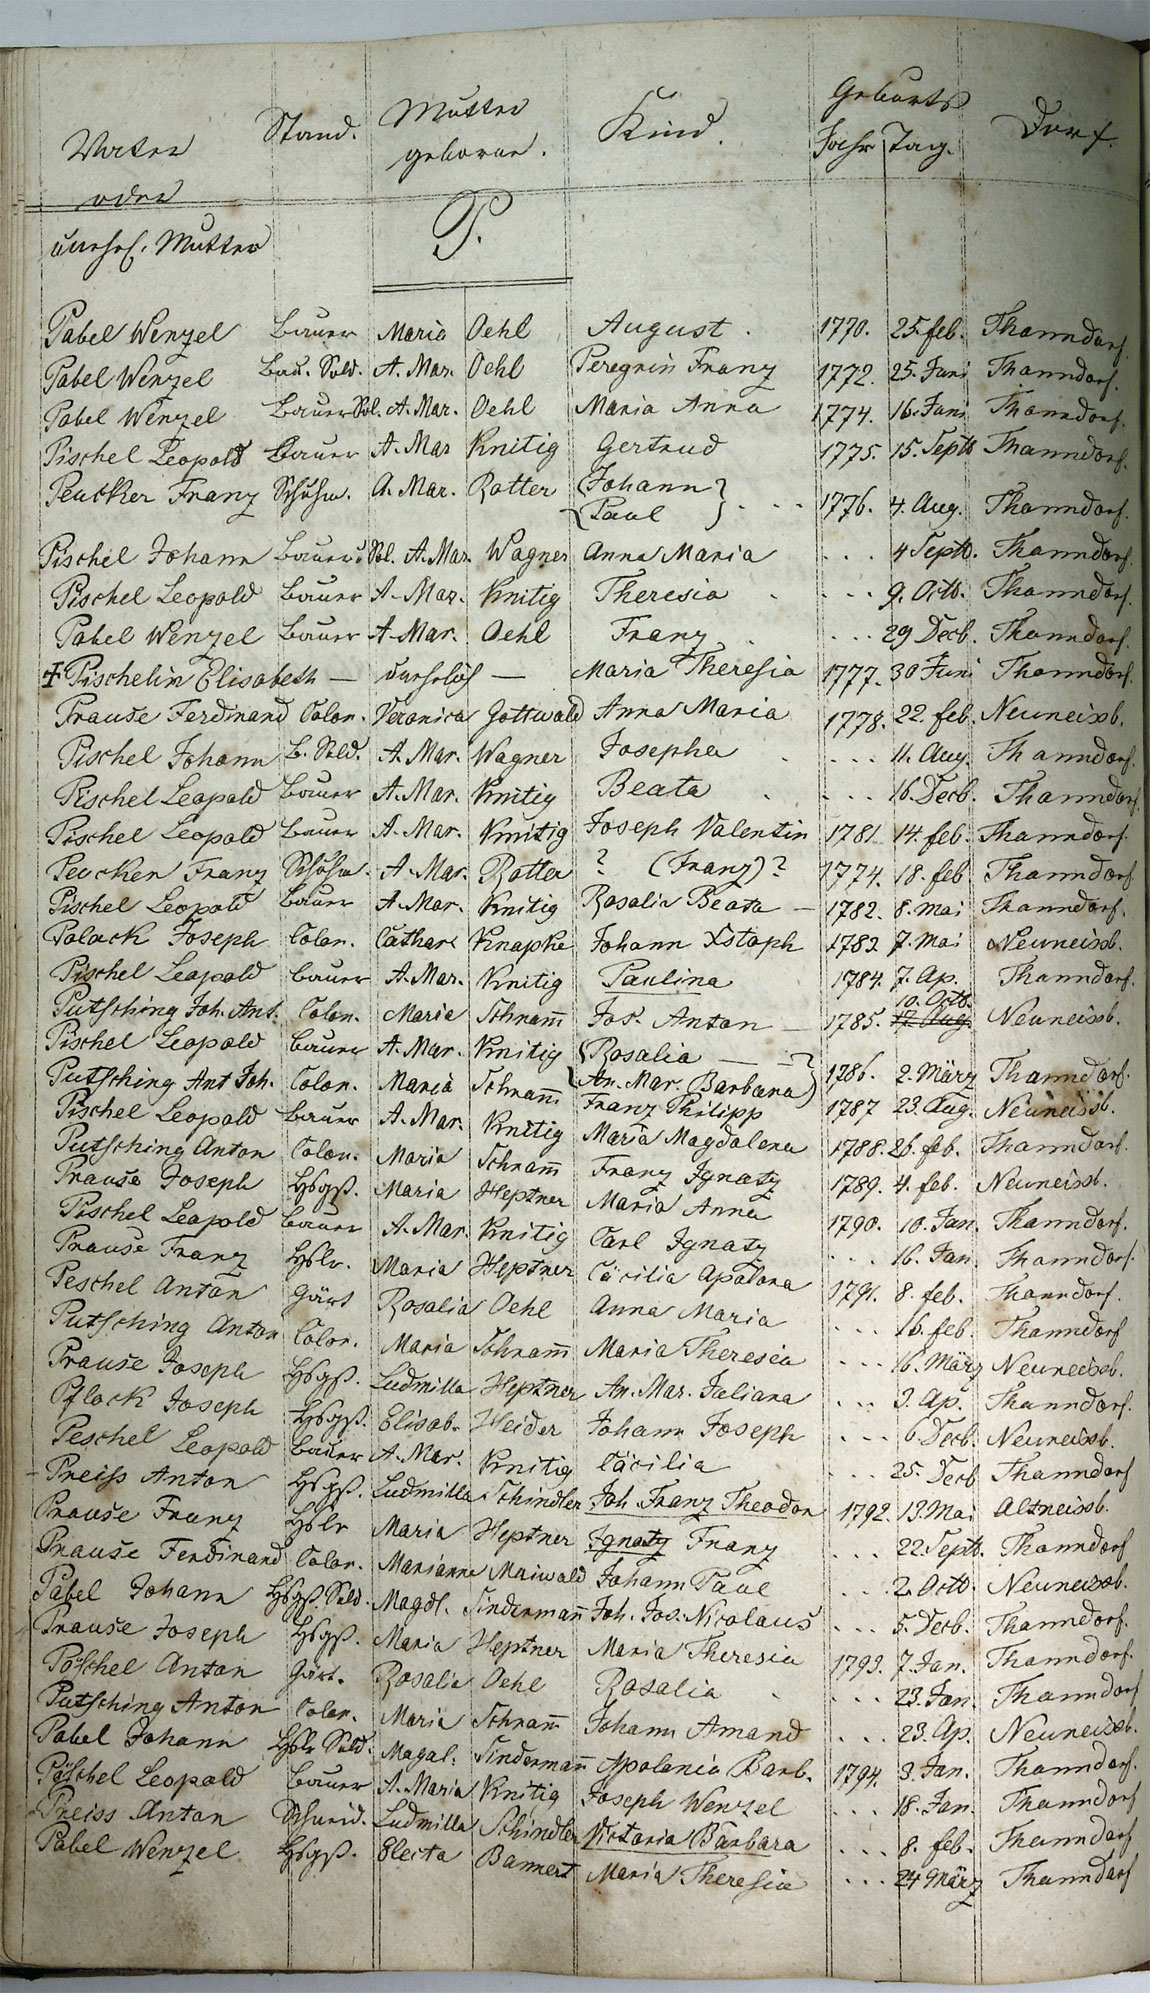 Vater Stand. Mutter Kind. Geburts Dorf.
oder geborne. Jahr Tag.
unehel. Mutter
P.
Pabel Wenzel Bauer Maria Oehl August. 1770. 25. feb. Thanndorf.
Pabel Wenzel Bau. Sold. A. Mar. Oehl Peregrin Franz 1772. 25. Juni Thanndorf.
Pabel Wenzel Bauer Sol. A. Mar. Oehl Maria Anna 1774. 16. Juni Thanndorf.
Pischel Leopold Bauer A. Mar Knitig Gertrud 1775. 15. Septb Thanndorf.
Peucker Franz Schuhm. A. Mar. Rotter {Johann
{Paul } . . . 1776. 4. Aug. Thanndorf.
Pischel Johann Bauer Sol. A. Mar. Wagner Anna Maria . . . 4 Septb. Thanndorf.
Pischel Leopold Bauer A. Mar. Knitig Theresia . . . . 9. Octb. Thanndorf.
Pabel Wenzel Bauer A. Mar. Oehl Franz . . . . 29 Decb. Thanndorf.
+ Pischelin Elisabeth — unehelich — Maria Theresia 1777. 30 Juni Thanndorf.
Prause Ferdinand Colon. Veronica Gottwald Anna Maria 1778. 22. feb. Neuneissb.
Pischel Johann B. Sold. A. Mar. Wagner Josepha . . . . 11. Aug. Thanndorf.
Pischel Leopold Bauer A. Mar. Knitig Beata . . . . 16. Decb. Thanndorf.
Pischel Leopold Bauer A. Mar. Knitig Joseph Valentin 1781. 14. feb. Thanndorf.
Peucker Franz Schuhm. A. Mar. Rotter ? (Franz)? 1774. 18. feb Thanndorf
Pischel Leopold Bauer A. Mar. Knitig Rosalia Beata — 1782. 8. Mai Thanndorf.
Polack Joseph Colon. Cathar. Knapke Johann Xstoph 1782 7. Mai Neuneissb.
Pischel Leopold Bauer A. Mar. Knitig Paulina 1784. 7. Ap. Thanndorf.
10. Octb.
Putsching Joh. Ant. Colon. Maria Schram̄ Jos. Anton — 1785. 17. Aug. Neuneissb.
Pischel Leopold Bauer A. Mar. Knitig {Rosalia —
{An. Mar. Barbara} 1786. 2. März Thanndorf.
Putsching Ant Joh. Colon. Maria Schram̄ Franz Philipp 1787 23. Aug. Neuneissb.
Pischel Leopold Bauer A. Mar. Knitig Maria Magdalena 1788. 26. feb. Thanndorf.
Putsching Anton Colon. Maria Schram̄ Franz Ignatz 1789. 4. feb. Neuneissb.
Prause Joseph Hsgß. Maria Heptner Maria Anna 1790. 10. Jan. Thanndorf.
Pischel Leopold Bauer A. Mar. Knitig Carl Ignatz . . 16. Jan. Thanndorf.
Prause Franz Hslr. Maria Heptner Cäcilia Apolona 1791. 8. feb. Thanndorf.
Peschel Anton Gärt Rosalia Oehl Anna Maria . . . 16. feb. Thanndorf
Putsching Anton Colon. Maria Schram̄ Maria Theresia . . . 16. März Neuneissb.
Prause Joseph Hsgß. Ludmilla Heptner An. Mar. Juliana . . . 3. Ap. Thanndorf.
Pflock Joseph Hsgß. Elisab. Weider Johann Joseph . . . 6. Decb. Neuneissb.
Peschel Leopold Bauer A. Mar. Knitig Cäcilia . . . 25. Decb Thanndorf
Preiss Anton Hsgß. Ludmilla Schindler Joh. Franz Theodor 1792. 13. Mai Altneissb.
Prause Franz Hslr Maria Heptner Ignatz Franz . . . 22. Septb. Thanndorf
Prause Ferdinand Colon. Marianne Maiwald Johann Paul . . . 2. Octb. Neuneissb.
Pabel Johann Hsgß. Sold. Magdl. Sinderman̄ Joh. Jos. Nicolaus . . . 5. Decb. Thanndorf.
Prause Joseph Hsgß. Maria Heptner Maria Theresia 1793. 7. Jan. Thanndorf.
Pöschel Anton Gärt. Rosalia Oehl Rosalia . . . . 23. Jan. Thanndorf
Putsching Anton Colon. Maria Schram̄ Johann Amand . . . 23. Ap. Neuneissb.
Pabel Johann Hslr Sold. Magal. Sinderman̄ Apolonia Barb. 1794. 3. Jan. Thanndorf.
Pöschel Leopold Bauer A. Maria Knitig Joseph Wenzel . . . 18. Jan. Thanndorf
Preiss Anton Schneid. Ludmilla Schindler Victoria Barbara . . . 8. feb. Thanndorf
Pabel Wenzel Hsgß. Electa Bannert Maria Theresia . . . 24 März Thanndorf